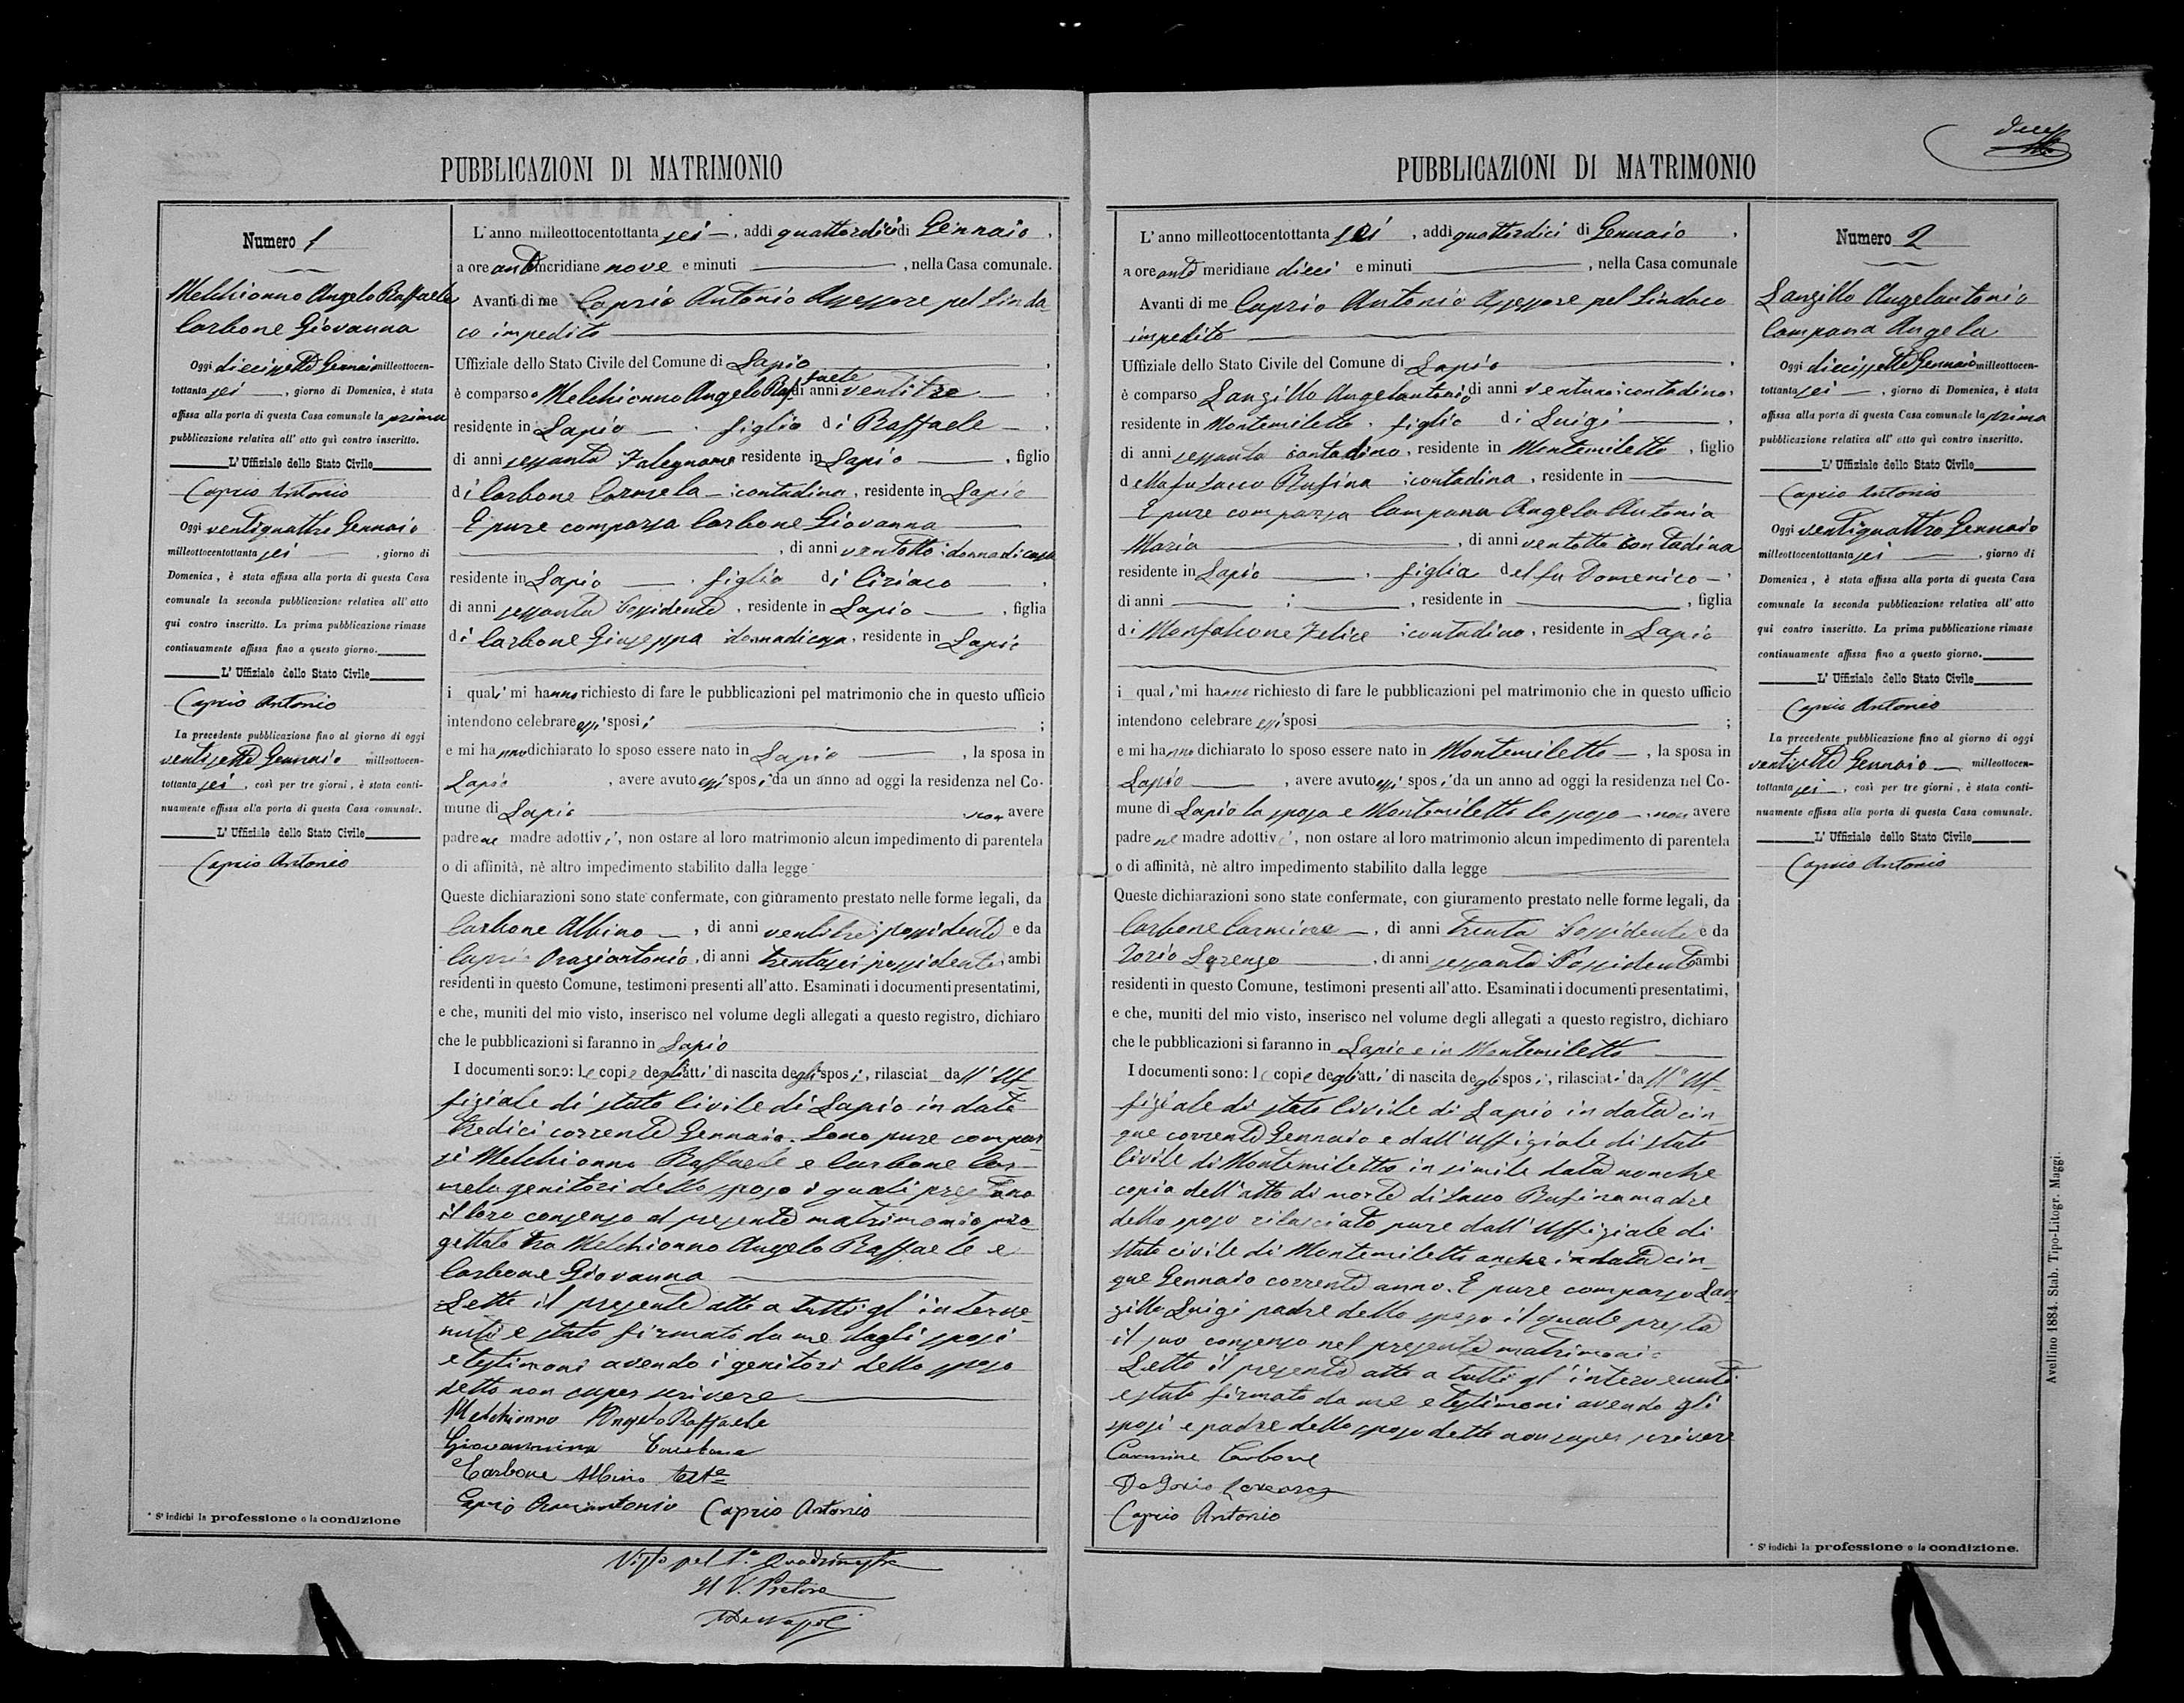 PUBBLICAZIONI DI MATRIMONIO
Numero 1
Melchionno Angelo Raffaele
Carbone Giovanna
Oggi diecissette Gennaio milleottocen-
tottanta sei, giorno di Domenica, è stata
affissa alla porta di questa Casa comunale la prima
pubblicazione relativa all' atto quì contro inscritto.
L' Uffiziale dello Stato Civile
Caprio Antonio
Oggi ventiquattro Gennaio
milleottocentottanta sei, giorno di
Domenica, è stata affissa alla porta di questa Casa
comunale la seconda pubblicazione relativa all' atto
quì contro inscritto. La prima pubblicazione rimase
continuamente affissa fino a questo giorno.
L' Uffiziale dello Stato Civile
Caprio Antonio
La precedente pubblicazione fino al giorno di oggi
ventisette Gennaio milleottocen-
tottanta sei, così per tre giorni, è stata conti-
nuamente affissa alla porta di questa Casa comunale.
L' Uffiziale dello Stato Civile
Caprio Antonio
* Si indichi la professione o la condizione
L'anno milleottocentottanta sei, addì quattordici di Gennaio,
a ore antimeridiane nove e minuti, nella Casa comunale.
Avanti di me Caprio Antonio Assessore pel Sinda-
co impedito
Uffiziale dello Stato Civile del Comune di Lapio,
è comparso Melchionno Angelo Raffaele di anni ventitre,
residente in Lapio, figlio di Raffaele,
di anni sessanta Falegname residente in Lapio, figlio
di Carbone Carmela contadina, residente in Lapio
E pure comparsa Carbone Giovanna
, di anni ventotto donna di casa
residente in Lapio, figlia di Ciriaco,
di anni sessanta Possidente, residente in Lapio, figlia
di Carbone Giuseppa donna di casa, residente in Lapio
i quali mi hanno richiesto di fare le pubblicazioni pel matrimonio che in questo ufficio
intendono celebrare essi sposi;
e mi hanno dichiarato lo sposo essere nato in Lapio, la sposa in
Lapio, avere avuto essi sposi da un anno ad oggi la residenza nel Co-
mune di Lapio non avere
padre ne madre adottivi, non ostare al loro matrimonio alcun impedimento di parentela
o di affinità, nè altro impedimento stabilito dalla legge
Queste dichiarazioni sono state confermate, con giuramento prestato nelle forme legali, da
Carbone Albino, di anni ventitre possidente e da
Caprio Oraziantonio, di anni trentasei possidente ambi
residenti in questo Comune, testimoni presenti all'atto. Esaminati i documenti presentatimi,
e che, muniti del mio visto, inserisco nel volume degli allegati a questo registro, dichiaro
che le pubblicazioni si faranno in Lapio
I documenti sono: le copie degli atti di nascita degli sposi, rilasciat dall' Uf-
fiziale di stato Civile di Lapio in data
tredici corrente Gennaio. Sono pure compar
si Melchionno Raffaele e Carbone Car-
mela genitori dello sposo i quali prestano
il loro consenso al presente matrimonio pro-
gettato tra Melchionno Angelo Raffaele e
Carbone Giovanna
Letto il presente atto a tutti gl' interve-
nuti e stato firmato da me dagli sposi
e testimoni avendo i genitori dello sposo
detto non saper scrivere
Melchionno Angelo Raffaele
Giovannina Carbone
Carbone Albino teste
Caprio Oraziantonio Caprio Antonio
Visto pel 1.° Quadrimestre
Il V. Pretore
PUBBLICAZIONI DI MATRIMONIO
L' anno milleottocentottanta sei, addì quattordici di Gennaio,
a ore anti meridiane dieci e minuti, nella Casa comunale
Avanti di me Caprio Antonio Assessore pel Sindaco
impedito
Uffiziale dello Stato Civile del Comune di Lapio,
è comparso Langillo Angelantonio di anni ventuno contadino,
residente in Montemiletto, figlio di Luigi,
di anni sessanta contadino, residente in Montemiletto, figlio
della fu Sacco Rufina contadina, residente in
E pure comparsa Campana Angela Antonia
Maria, di anni ventotto contadina
residente in Lapio, figlia del fu Domenico
di anni ;, residente in, figlia
di Monfalcone Felice contadina, residente in Lapio
i quali mi hanno richiesto di fare le pubblicazioni pel matrimonio che in questo ufficio
intendono celebrare essi sposi;
e mi hanno dichiarato lo sposo essere nato in Montemiletto, la sposa in
Lapio, avere avuto essi sposi da un anno ad oggi la residenza nel Co-
mune di Lapio la sposa e Montemiletto lo sposo non avere
padre ne madre adottivi, non ostare al loro matrimonio alcun impedimento di parentela
o di affinità, nè altro impedimento stabilito dalla legge
Queste dichiarazioni sono state confermate, con giuramento prestato nelle forme legali, da
Carbone Carmine, di anni trenta Possidente e da
Iorio Lorenzo, di anni sessanta Possidente ambi
residenti in questo Comune, testimoni presenti all'atto. Esaminati i documenti presentatimi,
e che, muniti del mio visto, inserisco nel volume degli allegati a questo registro, dichiaro
che le pubblicazioni si faranno in Lapio e in Montemiletto
I documenti sono: le copie degli atti di nascita degli sposi, rilasciati dall' Uf-
fiziale di stato Civile di Lapio in data cin-
que corrente Gennaio e dall'Uffiziale di stato
Civile di Montemiletto in simile data nonche
copia dell'atto di morte di Sacco Rufina madre
dello sposo rilasciato pure dall'Uffiziale di
stato civile di Montemiletto anche in data cin-
que Gennaio corrente anno. E pure comparso Lan-
gillo Luigi padre dello sposo il quale presta
il suo consenso nel presente matrimonio
Letto il presente atto a tutti gl' intervenuti
e stato firmato da me e testimoni avendo gli
sposi e padre dello sposo detto non saper scrivere
Carmine Carbone
De Iorio Lorenzo
Caprio Antonio
Numero 2
Langillo Angelantonio
Campana Angela
Oggi diecissette Gennaio milleottocen-
tottanta sei, giorno di Domenica, è stata
affissa alla porta di questa Casa comunale la prima
pubblicazione relativa all' atto quì contro inscritto.
L' Uffiziale dello Stato Civile
Caprio Antonio
Oggi ventiquattro Gennaio
milleottocentottanta sei, giorno di
Domenica, è stata affissa alla porta di questa Casa
comunale la seconda pubblicazione relativa all' atto
quì contro inscritto. La prima pubblicazione rimase
continuamente affissa fino a questo giorno.
L' Uffiziale dello Stato Civile
Caprio Antonio
La precedente pubblicazione fino al giorno di oggi
ventisette Gennaio milleottocen-
tottanta sei, così per tre giorni, è stata conti-
nuamente affissa alla porta di questa Casa comunale.
L' Uffiziale dello Stato Civile
Caprio Antonio
* Si indichi la professione o la condizione.
Avellino 1884. Stab. Tipo-Litogr. Maggi.